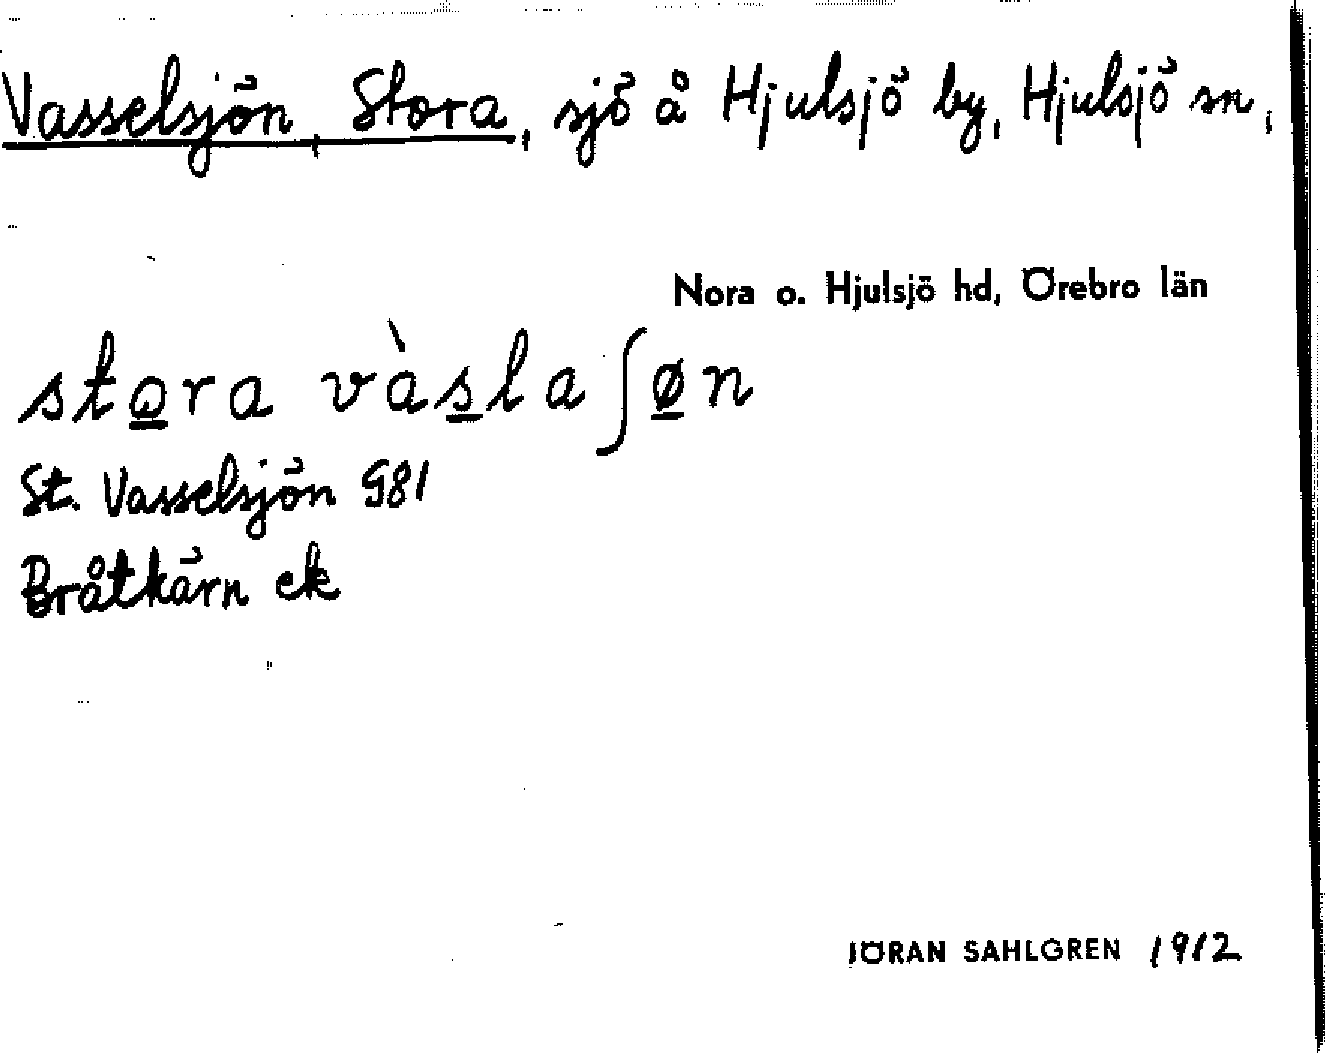 Vasselsjön, Stora, sjö å Hjulsjö by, Hjulsjö sn,
Nora o. Hjulsjö hd, Örebro län
stora vàslaʃøn
St. Vasselsjön G81
Bråtkärn ek
JÖRAN SAHLGREN 1912